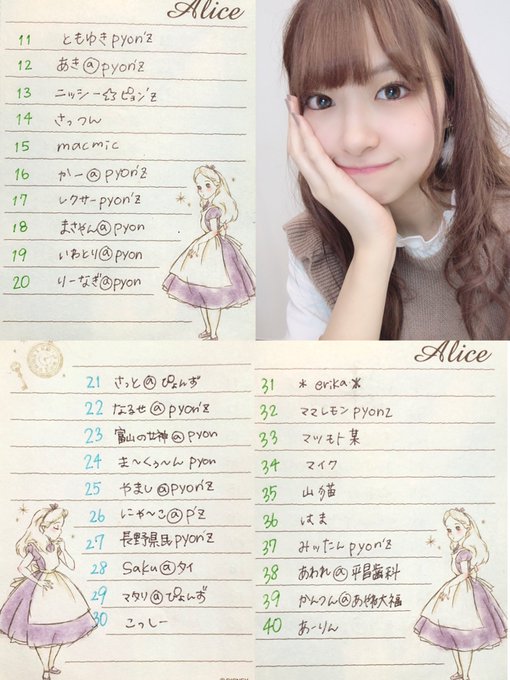 Alice
11 ともゆきpyon'z
12 あき@pyon'z
13 ニッシー☆ピョン'z
14 さっつん
15 macmic
16 かー@pyon'z
17 レクサーpyon'z
18 まさやん@pyon
19 いわとり@pyon
20 りーなぎ@pyon
21 さっと@ぴょんず
22 なるせ@pyon'z
23 富山の女神@pyon
24 ま〜くぅ〜ん pyon
25 やまし@pyon'z
26 にゃ〜こ@p'z
27 長野県民pyon'z
28 Saku@タイ
29 マタリ@ぴょんず
30 こっしー
Alice
31 *erika*
32 ママレモンpyonz
33 マツモト某
34 マイク
35 山猫
36 はま
37 みッたんpyon'z
38 あわれ@平目歯科
39 かんつん@あやね大福
40 あーりん